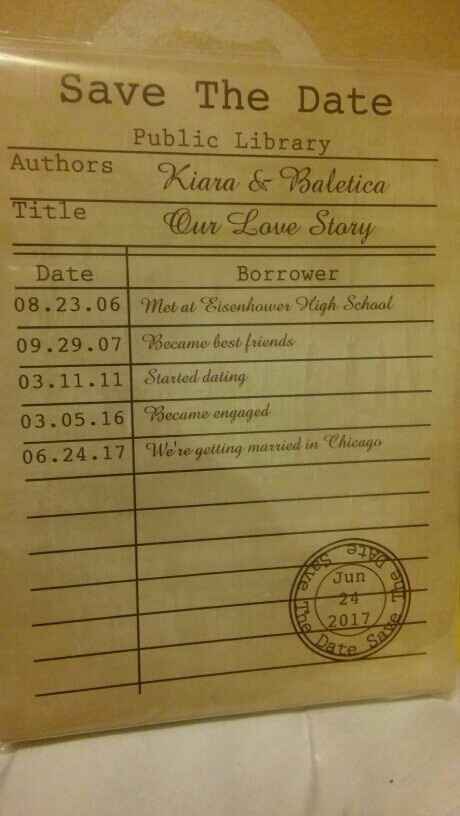 Save The Date
Public Library
Authors Kiara & Baletica
Title Our Love Story
Date Borrower
08.23.06 Met at Eisenhower High School
09.29.07 Became best friends
03.11.11 Started dating
03.05.16 Became engaged
06.24.17 We're getting married in Chicago
Save The Date Save The Date
Jun
24
2017